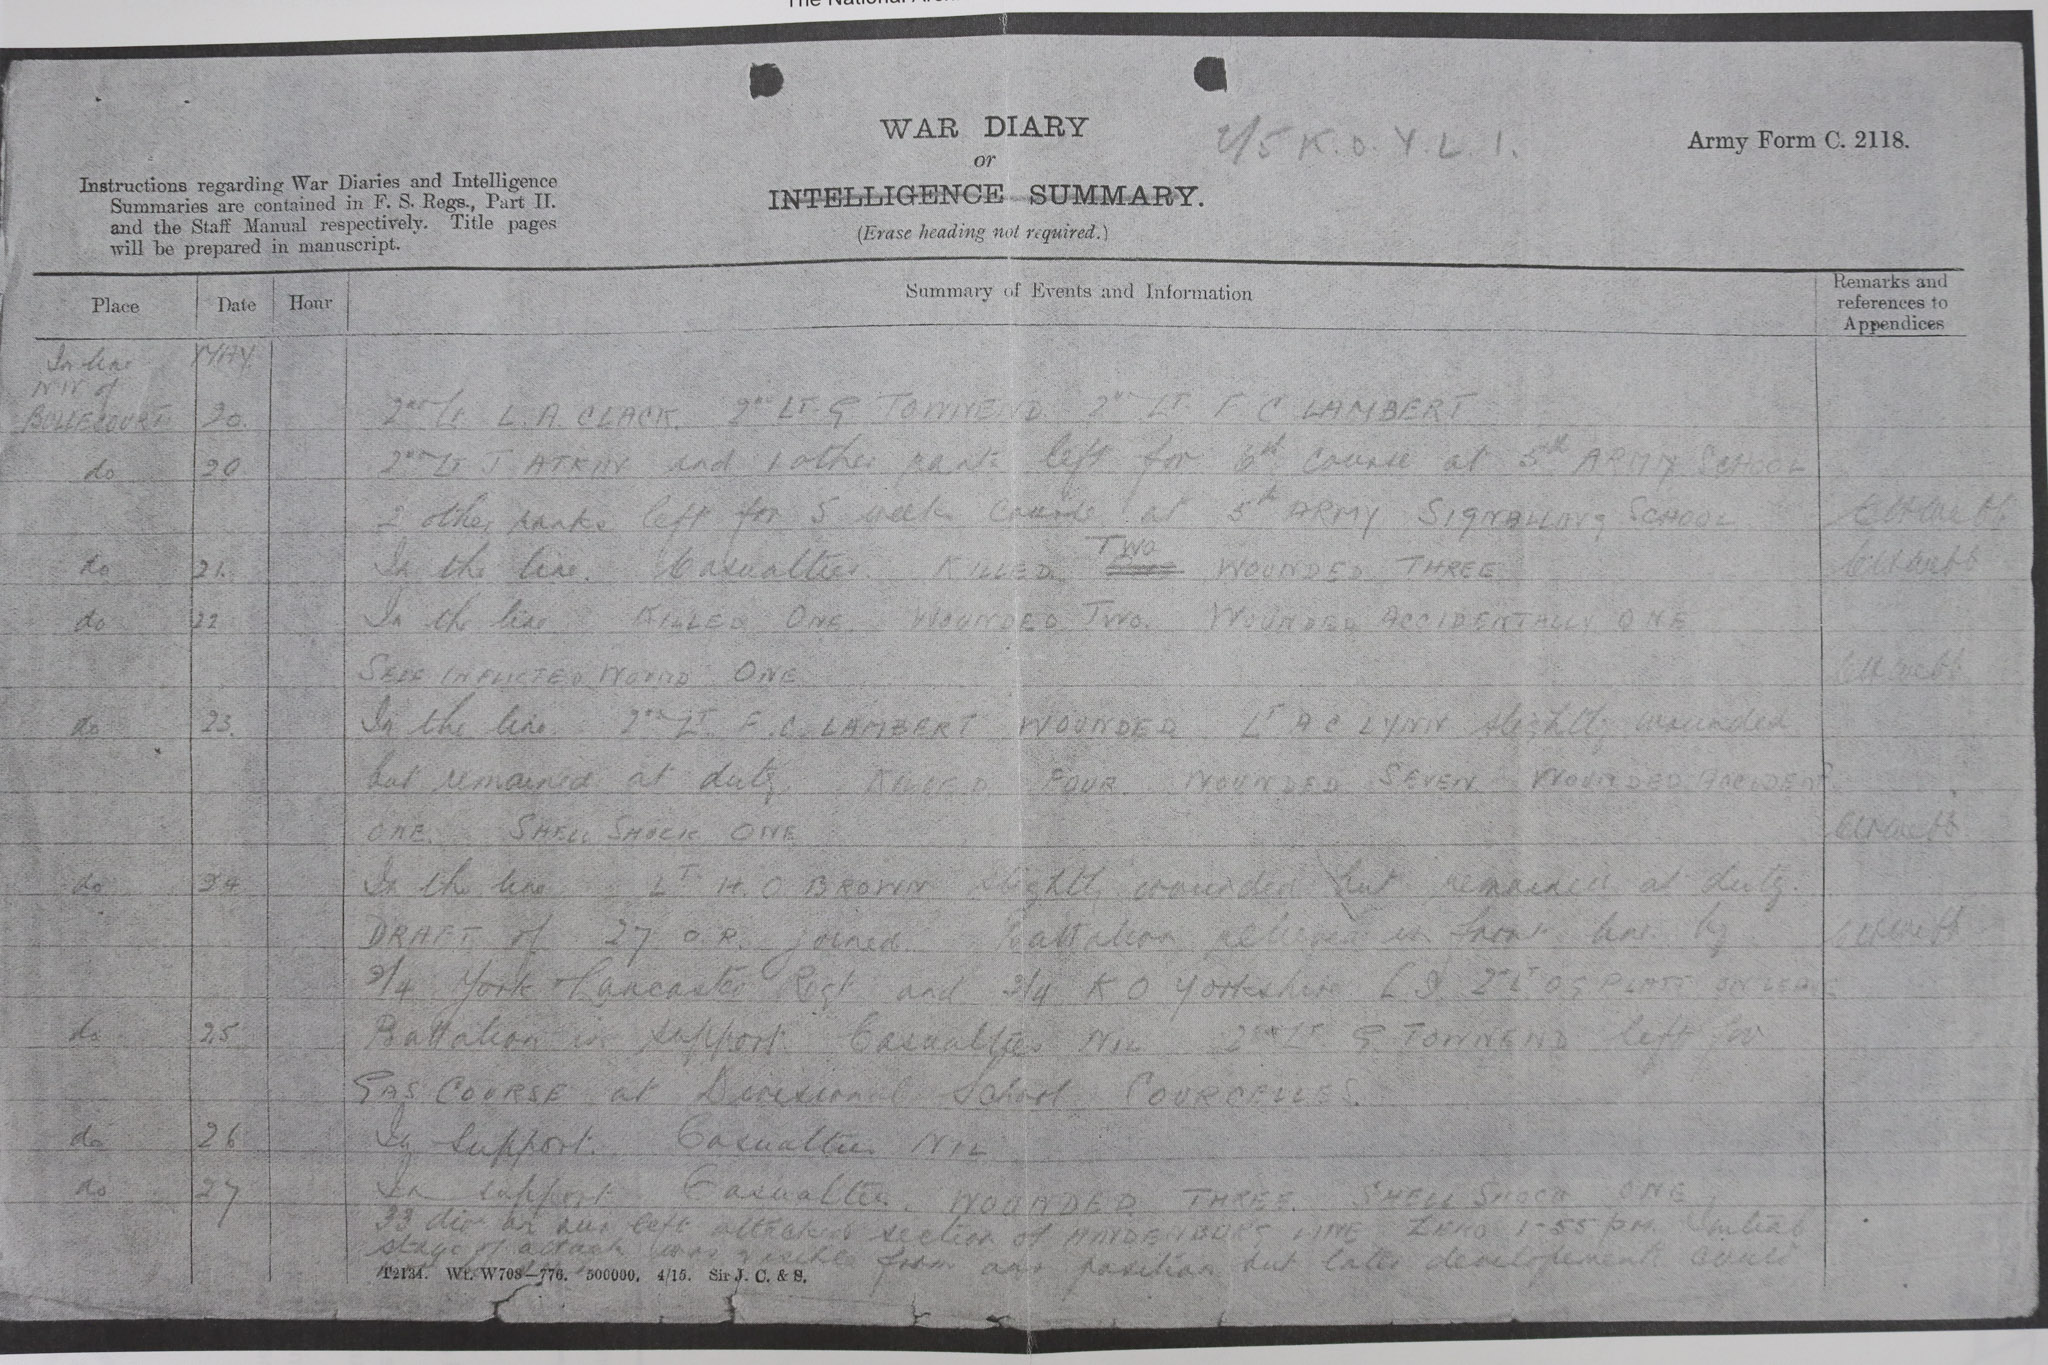 The National
WAR DIARY
or
INTELLIGENCE SUMMARY.
(Erase heading not required.)
2/5 K.O.Y.L.I.
Army Form C. 2118.
Instructions regarding War Diaries and Intelligence
Summaries are contained in F. S. Regs., Part II.
and the Staff Manual respectively. Title pages
will be prepared in manuscript.
Place Date Hour Summary of Events and Information Remarks and references to Appendices
In line MAY
NW of
BULLECOURT 20. 2nd Lt. L.A. CLACK. 2nd LT. G TOWNEND 2nd LT. F C LAMBERT
do 20 2nd LT J and 1 other rank left for 6th course at 5th ARMY SCHOOL
2 other ranks left for 5 weeks course at 5th ARMY SIGNALLING SCHOOL
do 21. In the line. Casualties KILLED TWO WOUNDED THREE
do 22 In the line KILLED ONE WOUNDED TWO. WOUNDED ACCIDENTALLY ONE
SELF INFLICTED WOUND ONE
do 23. In the line. 2nd LT. F.C. LAMBERT WOUNDED LT A C LYNN slightly wounded
but remained at duty. KILLED FOUR WOUNDED SEVEN WOUNDED ACCIDENT.
ONE SHELL SHOCK ONE
do 24 In the line LT H.O BROWN slightly wounded but remained at duty.
DRAFT of 27 O.R. joined Battalion relieved in front line by
2/4 York & Lancaster Regt and 2/4 K O Yorkshire L I 2nd LT O G PLATT ON LEAVE
do 25 Battalion in support. Casualties NIL 2nd LT G. TOWNEND left for
GAS COURSE at Divisional School COURCELLES.
do 26 In support. Casualties NIL
do 27 In support Casualties. WOUNDED THREE. SHELL SHOCK ONE
33 div on our left attacked section of HINDENBURG LINE ZERO 1-55 pm. Initial
stage of attack was visible from our position but later developements could
T2134. Wt. W708—776. 500000. 4/15. Sir J. C. & S.